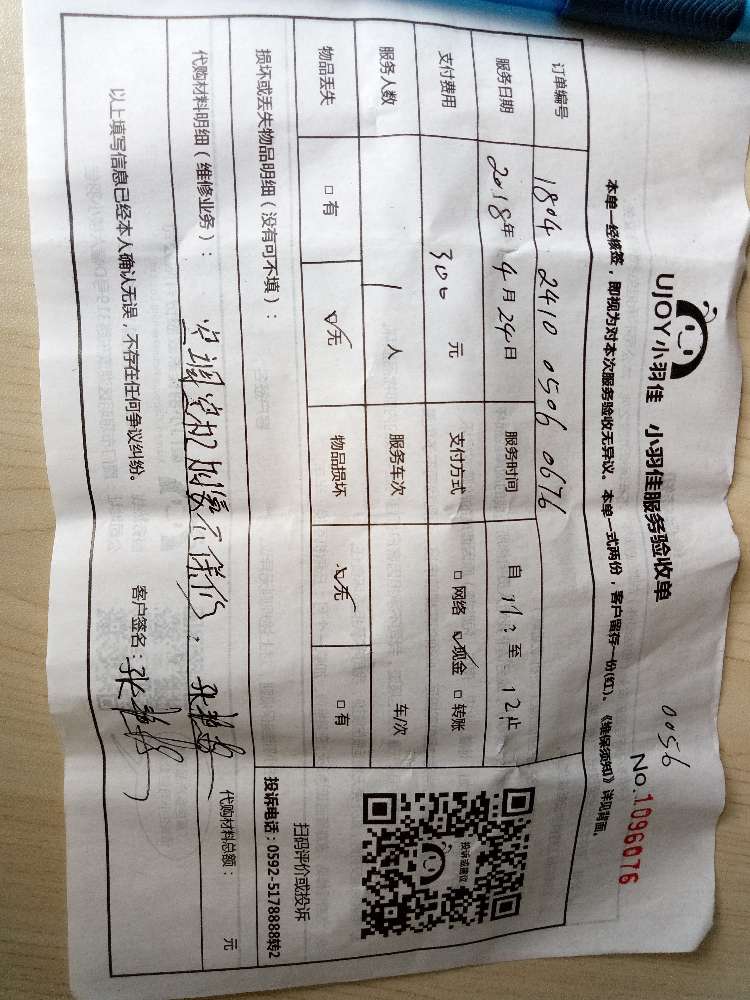 0056
UJOY小羽佳 小羽佳服务验收单 No.1096076
本单一经核签，即视为对本次服务验收无异议。本单一式两份，客户留存一份(红)。《维保须知》详见背面。
订单编号 1804 2410 0506 0676
服务日期 2018年4月24日 服务时间 自 11: 至 12止
支付费用 300 元 支付方式 □网络 ☑现金 □转账
服务人数 1 人 服务车次 车/次
物品丢失 □有 ☑无 物品损坏 ☑无 □有
损坏或丢失物品明细（没有可不填）：
代购材料明细（维修业务）： 代购材料总额： 元
以上填写信息已经本人确认无误，不存在任何争议纠纷。 客户签名：张
投诉或建议
扫码评价或投诉
投诉电话：0592-5178888转2